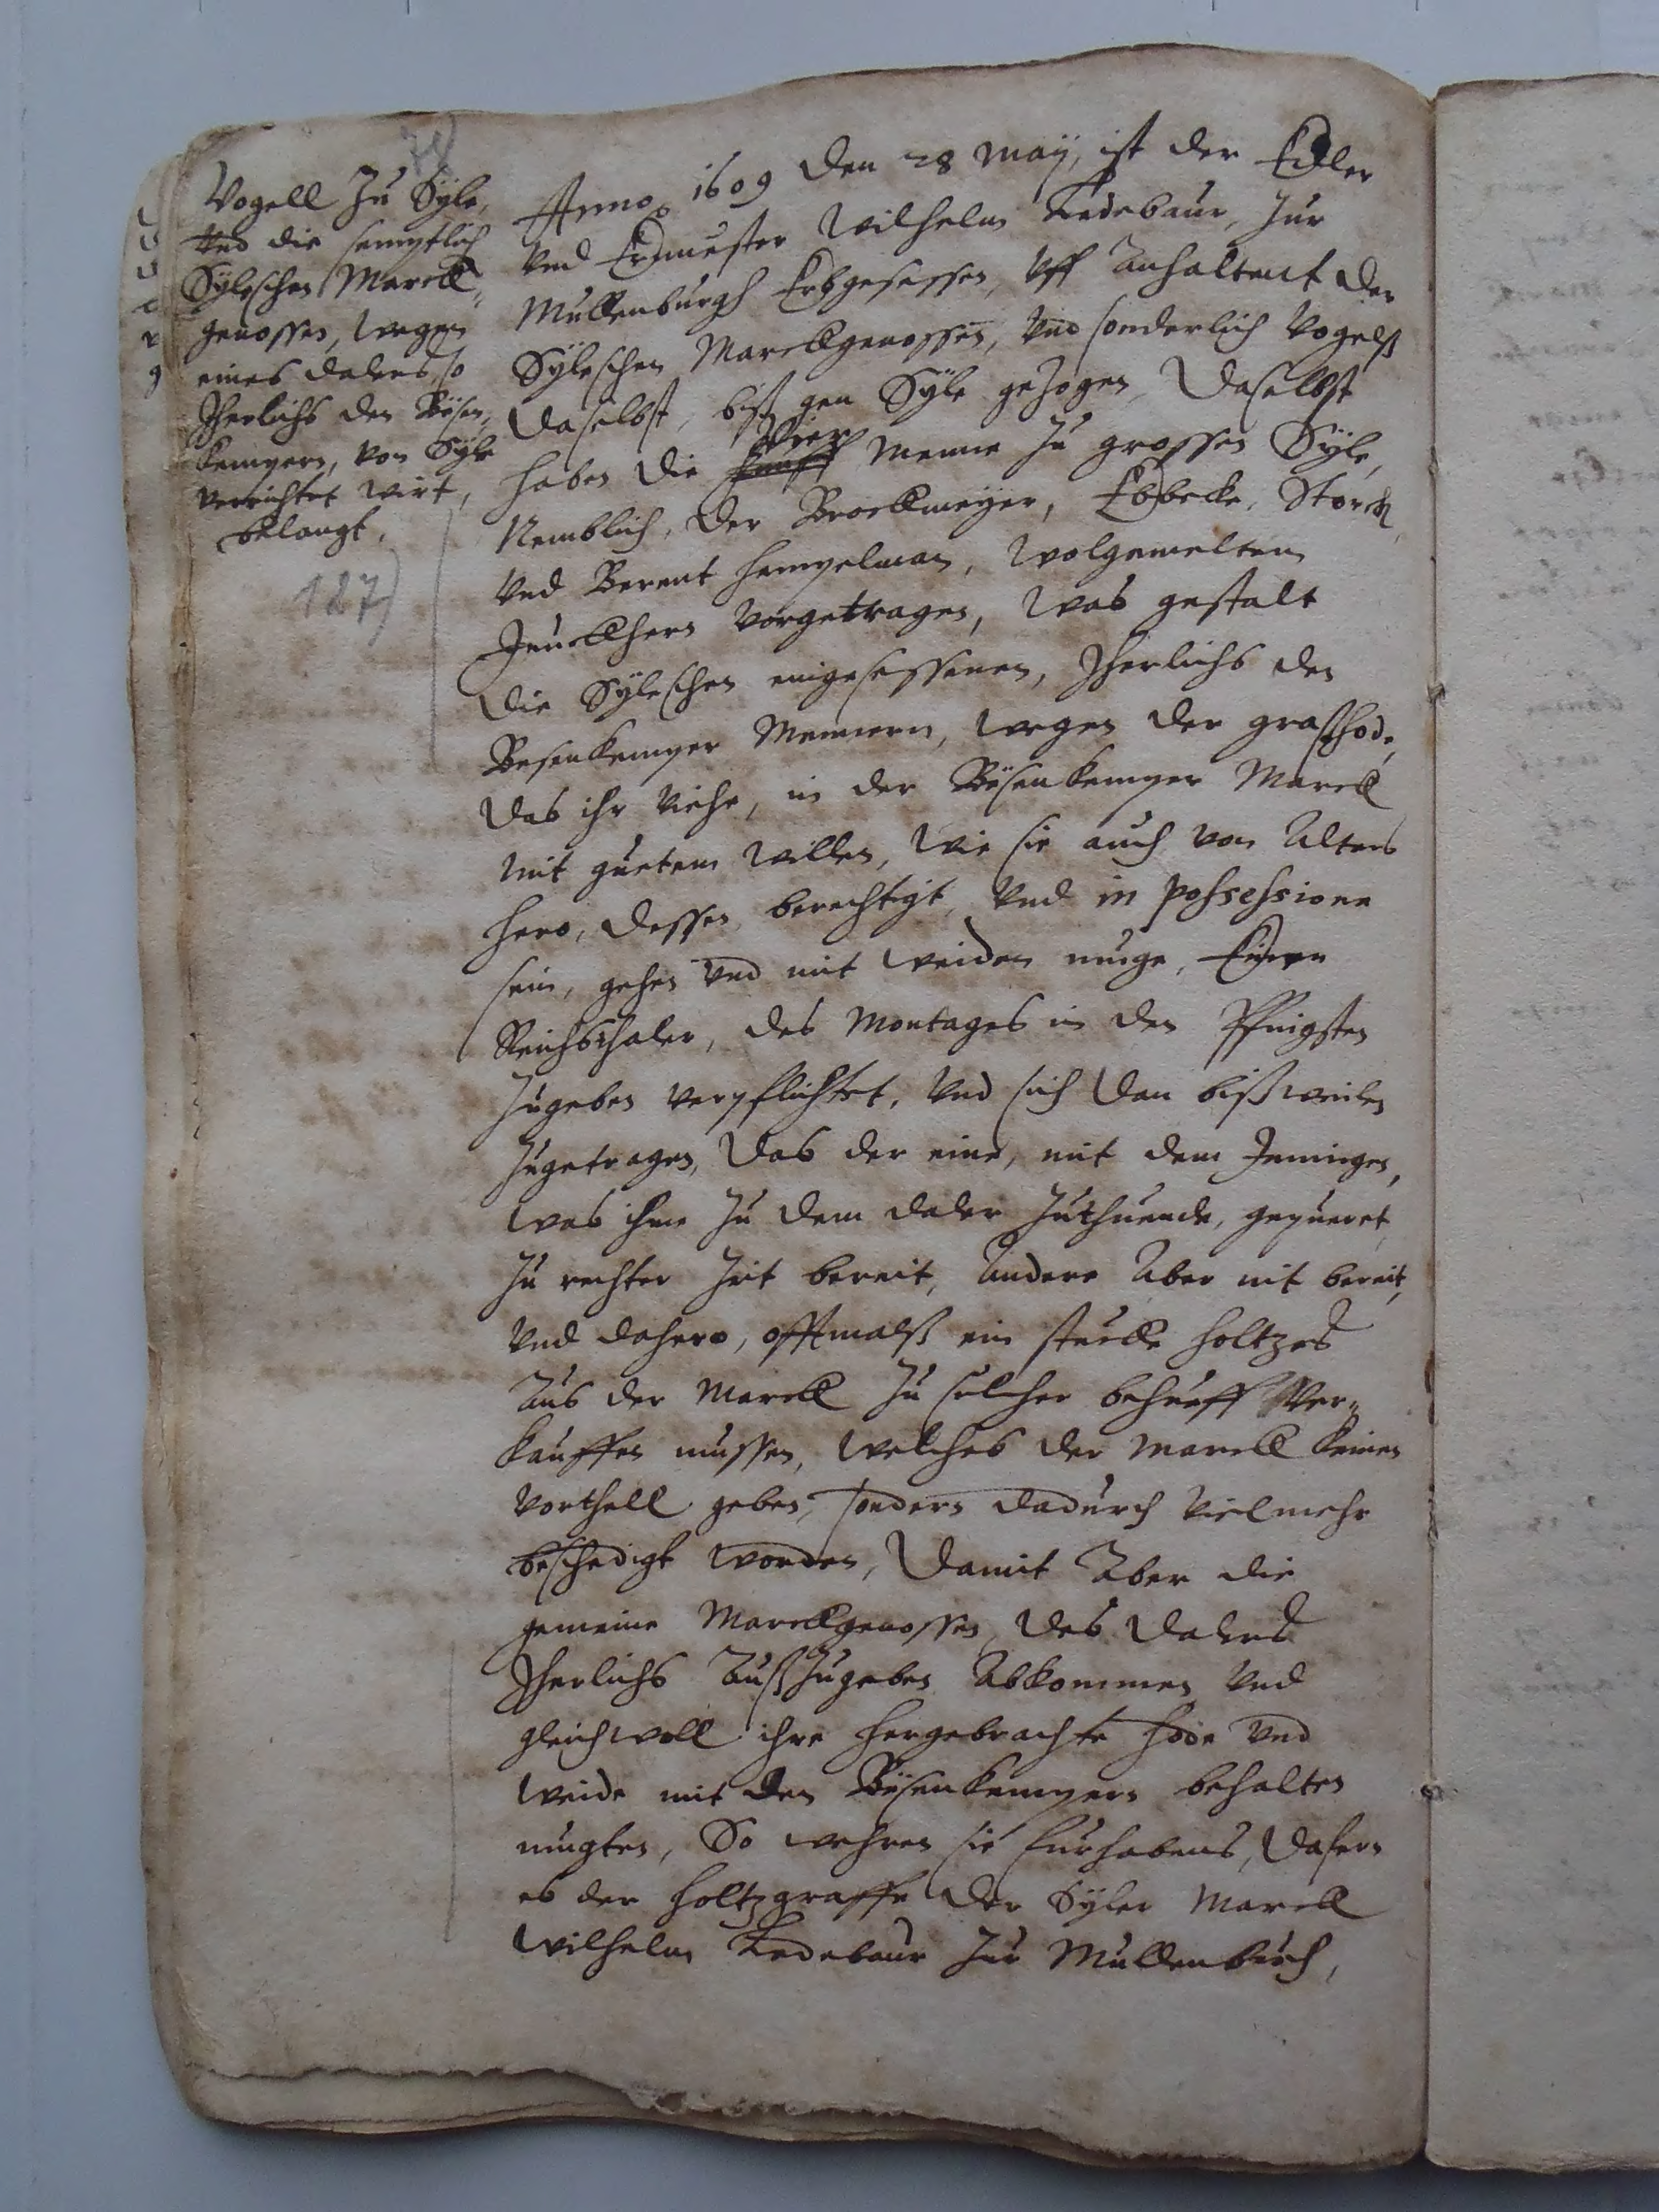 Vogell zu Syle,
Vnd die semptlich
Syleschen Marck-
genossen, wegen
eines dalers, so
Jherlichs den Bÿsen-
kempern, von Syle
verrichtet wirt,
belangt.
127)
Anno 1609 den 28 Maÿ, ist der Edler
Vnd Ernuester Wilhelm Ledebaur, zur
Mullenburgh Erbgesessen, Vff Anhaltent der
Sÿleschen Marckgenossen, Vnd sonderlich Vogelß
daselbst, biß gen Sÿle gezogen, Daselbst
Vier
haben die funff Menne zu grossen Sÿle,
Nemblich, der Brockmeÿer, Ebbecke, Storck,
Vnd Berent Hempelman, Wolgemelten
Junckhern Vorgetragen, Was gestalt
die Sÿleschen eingesessenen, Jherlichs den
Besenkemper Mennern, wegen der graßhode,
das ihr Viehe, in der Bÿsenkemper Marck
mit guetem Willen, Wie sie auch von Alters
hero, dessen berechtigt, Vnd in possessione
sein, gehen Vnd mit weiden muge, Einen
Reichsthaler, des Montages in den Pfingsten
zugeben verpflichtet, Vnd sich dan bißweilen
zugetragen, Das der eine, mit dem Jeningen,
was ihme zu dem daler zuthuende, gepueret
zu rechter Zeit bereit, Andere Aber nit bereit,
Vnd dahero, offtmalß ein stucke holtzes
Aus der Marck zu solcher behueff Ver-
kauffen mussen, Welches der Marck keinen
Vorthell geben, sondern dadurch Vielmehr
beschedigt worden, Damit Aber die
gemeine Marckgenossen, des dalers
Jherlichs Außzugeben Abkommen Vnd
gleichwoll ihre hergebrachte hode Vnd
Weide mit den Bÿsenkempern behalten
mugten, So wehren sie furhabens, dafern
es der Holtzgraffe der Sÿler Marck
Wilhelm Ledebaur zur Mullenburch,